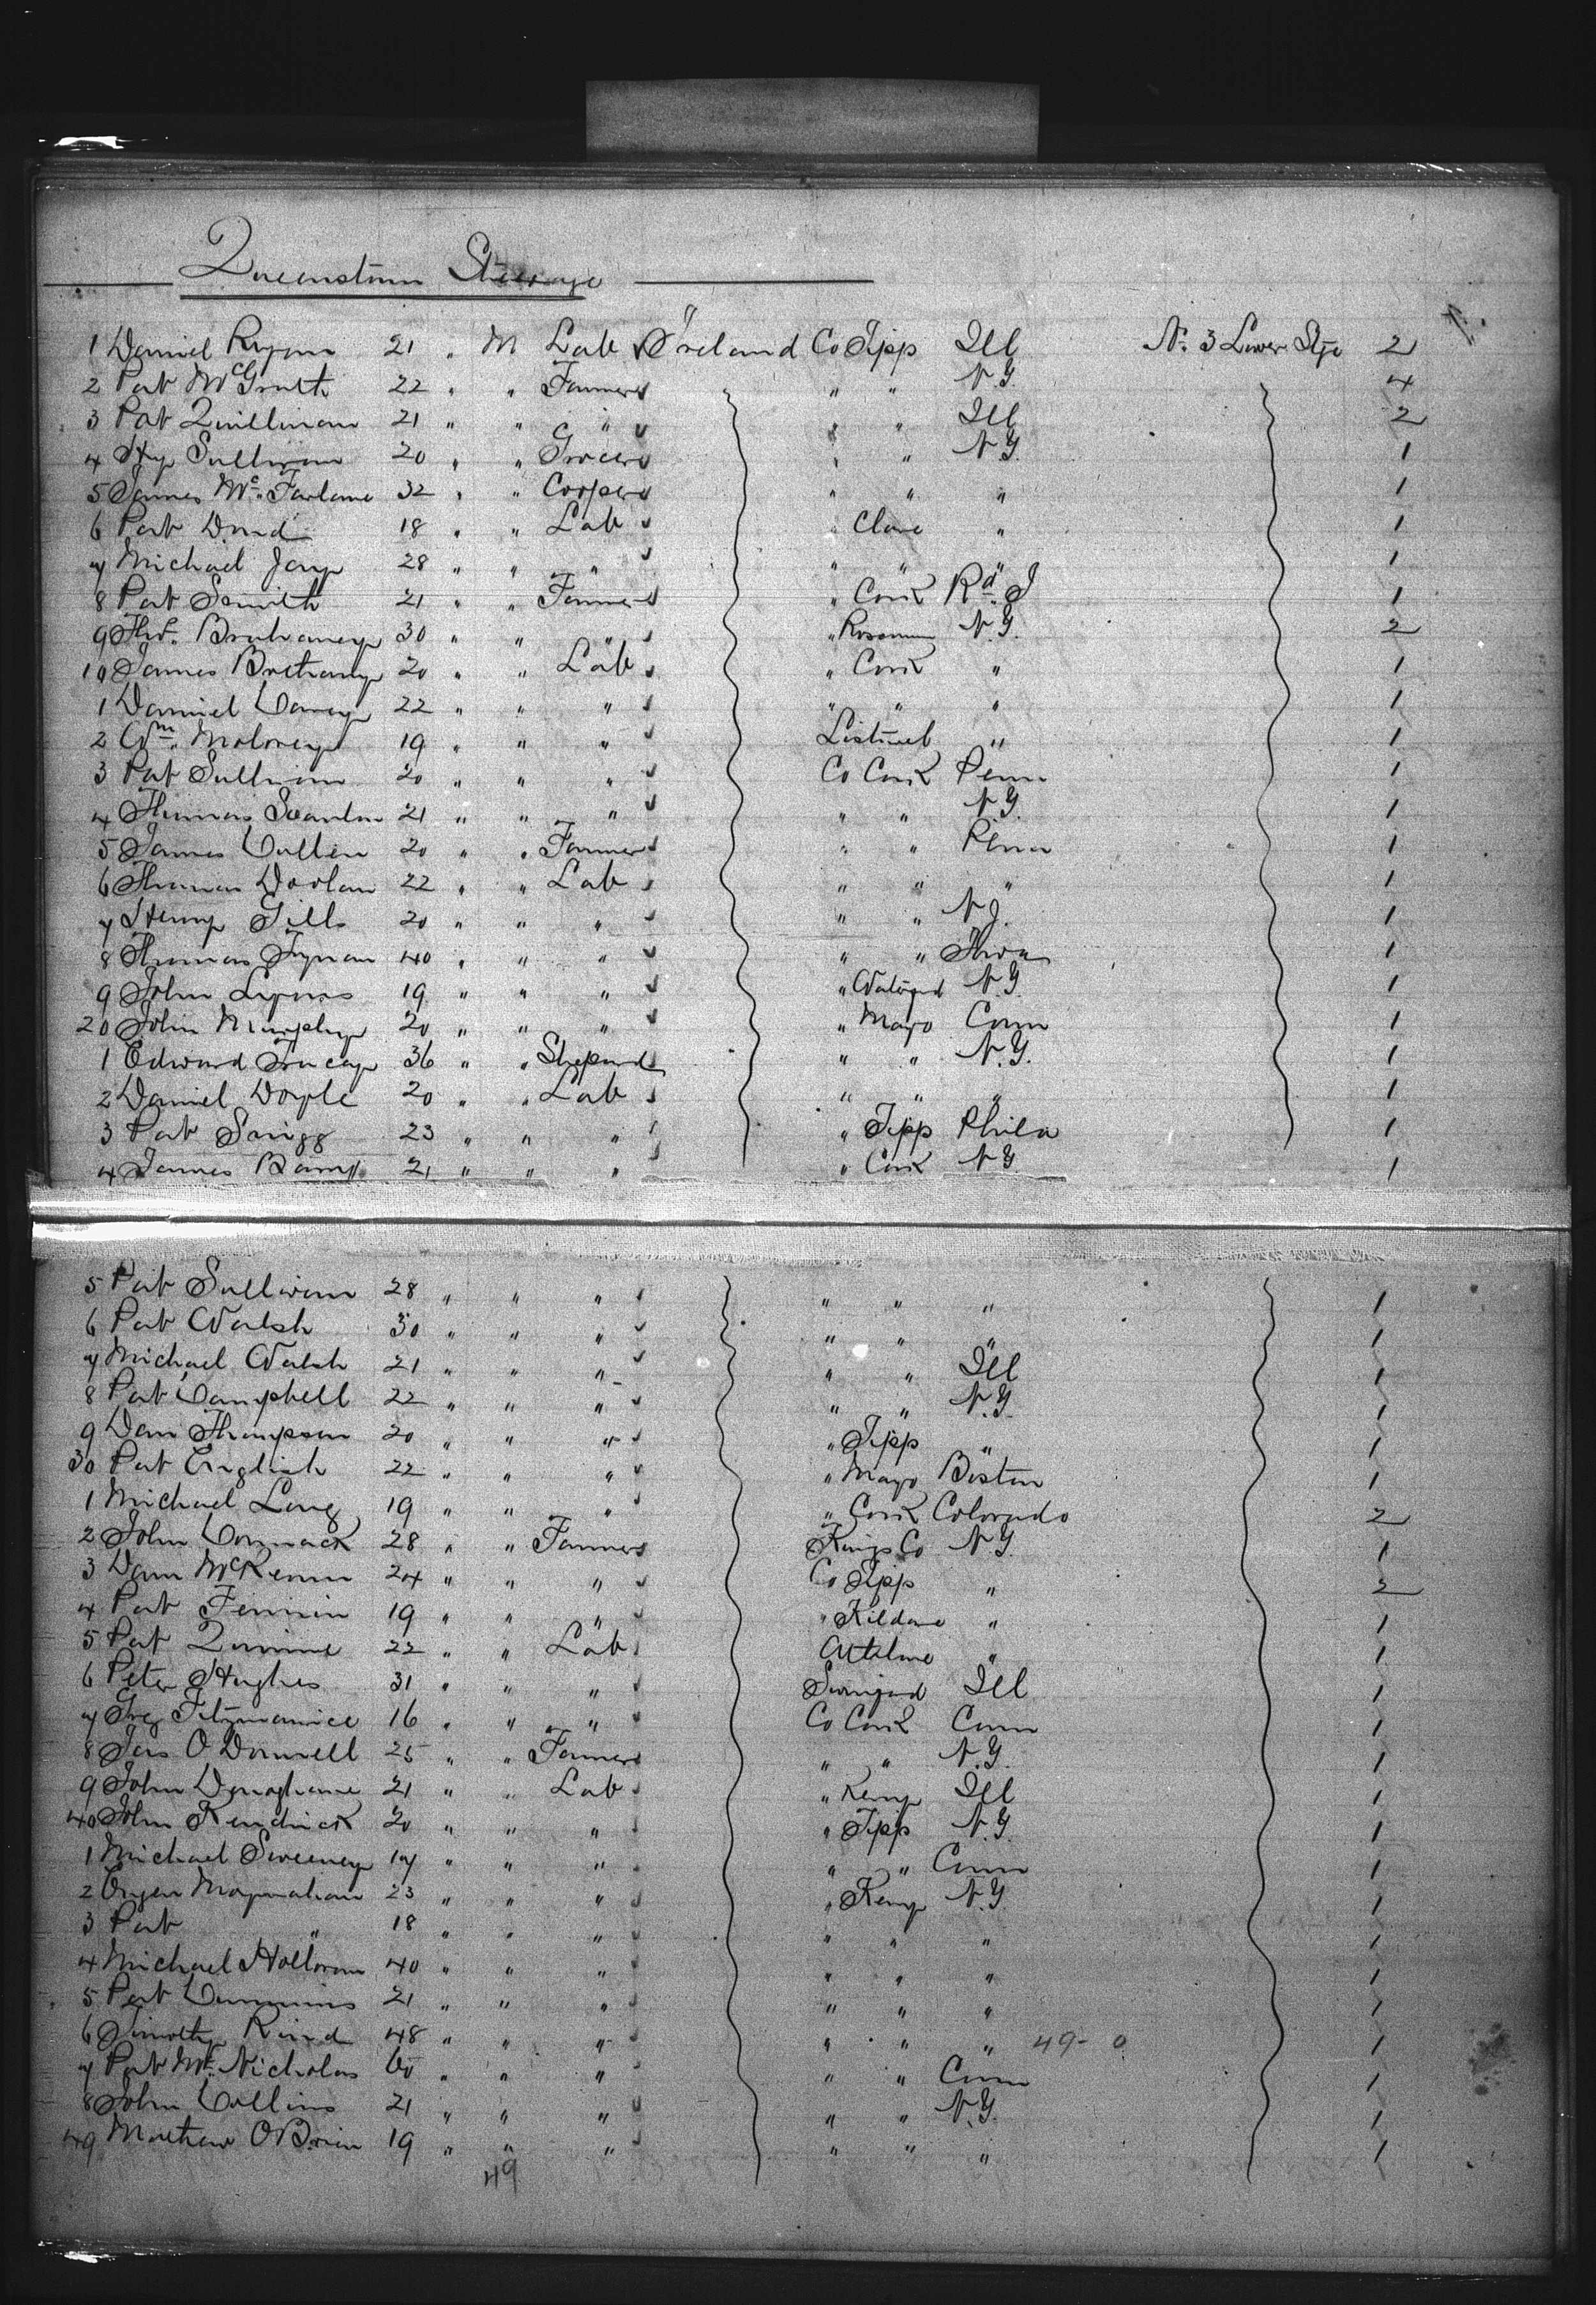 Queenstown Steerage
1 Daniel Ryan 21 " M Lab Ireland Co Tipp Ill No. 3 Lower Stge 2
2 Pat McGrath 22 " " Farmer " " N.Y. 4
3 Pat Quillinan 21 " " " " " Ill 2
4 Hy Sullivan 20 " " Grocer " " N.Y. 1
5 James McFarlane 32 " " Cooper " " " 1
6 Pat 18 " " Lab " Clare " 1
7 Michael 28 " " " " " " 1
8 Pat Smith 21 " " Farmer " Cork Rd. I 1
9 Thos. 30 " " " " Roscommn N.Y. 2
10 James 20 " " Lab " Cork " 1
1 Daniel Carey 22 " " " " " " 1
2 Wm. Moloney 19 " " " " 1
3 Pat Sullivan 20 " " " Co Cork Penn 1
4 Thomas Scanlon 21 " " " " " N.Y. 1
5 James Cullen 20 " " Farmer " " Penn 1
6 Thomas Doolan 22 " " Lab " " " 1
7 Henry Gills 20 " " " " " N.J. 1
8 Thomas Tynan 40 " " " " " 1
9 John Lyons 19 " " " " Waterford N.Y. 1
20 John Murphy 20 " " " " Mayo Conn 1
1 Edward Tracey 36 " " Shepard " " N.Y. 1
2 Daniel Doyle 20 " " Lab " " " 1
3 Pat 23 " " " " Tipp Phila 1
4 James 21 " " " " Cork N.Y. 1
5 Pat Sullivan 28 " " " " " " 1
6 Pat Walsh 30 " " " " " " 1
7 Michael Walsh 21 " " " " " Ill 1
8 Pat Campbell 22 " " " " " N.Y. 1
9 Dan Thompson 20 " " " " Tipp " 1
30 Pat English 22 " " " " Mayo Boston 1
1 Michael Long 19 " " " " Cork Colorado 2
2 John Cormack 28 " " Farmer Kings Co N.Y. 1
3 Dan McKenna 24 " " " Co Tipp " 2
4 Pat Fennin 19 " " " " Kildare " 1
5 Pat Quinne 22 " " Lab Athlone " 1
6 Peter Hughes 31 " " " Swinford Ill 1
7 Fitzmaurice 16 " " " Co Cork Conn 1
8 Jas O'Donnell 25 " " Farmer " " N.Y. 1
9 John Donoghue 21 " " Lab " Kerry Ill 1
40 John Kendrick 20 " " " " Tipp N.Y. 1
1 Michael Sweeney 17 " " " " " Conn 1
2 Moynahan 23 " " " " Kerry N.Y. 1
3 Pat " 18 " " " " " " 1
4 Michael Holloran 40 " " " " " " 1
5 Pat Cummins 21 " " " " " " 1
6 Timothy 48 " " " " " " 49-0 1
7 Pat McNicholas 60 " " " " " Conn 1
8 John Collins 21 " " " " " N.Y. 1
49 Mathew OBrien 19 " " " " " " 1
49